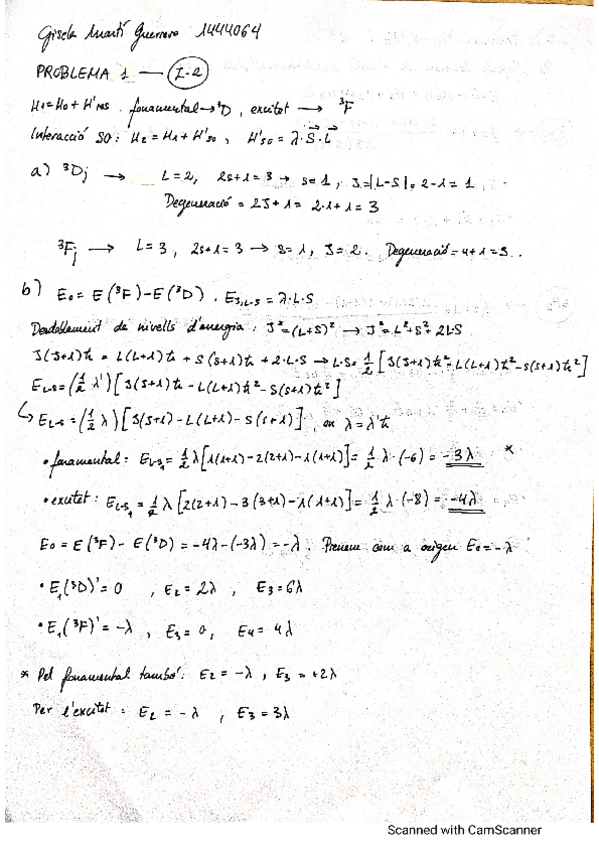 Gisela Martí Guerrero 1444064
PROBLEMA 1 — I-2
H1 = H0 + H'res . fonamental → ³D , excitat → ³F
Interacció SO: H2 = H1 + H'so , H'so = λ·S·L
a) ³Dj → L=2, 2s+1=3 → s=1, J=|L-S|=2-1=1
Degeneració = 2J+1 = 2·1+1 = 3
³Fj → L=3, 2s+1=3 → s=1, J=2. Degeneració = 4+1=5.
b) E0 = E(³F) - E(³D) . E3,L-S = λ·L·S
Desdoblament de nivells d'energia: J² = (L+S)² → J² = L²+S²+2L·S
J(J+1)ħ = L(L+1)ħ + S(S+1)ħ + 2·L·S → L·S = 1/2 [J(J+1)ħ² - L(L+1)ħ² - S(S+1)ħ²]
EL-S = (1/2 λ') [J(J+1)ħ - L(L+1)ħ² - S(S+1)ħ²]
↳ EL-S = (1/2 λ) [J(J+1) - L(L+1) - S(S+1)] , on λ = λ'ħ
• fonamental: EL-S1 = 1/2 λ [1(1+1) - 2(2+1) - 1(1+1)] = 1/2 λ·(-6) = -3λ *
• excitat: EL-S1 = 1/2 λ [2(2+1) - 3(3+1) - 1(1+1)] = 1/2 λ·(-8) = -4λ
E0 = E(³F) - E(³D) = -4λ - (-3λ) = -λ . Prenem com a origen E0 = -λ
• E1(³D)' = 0 , E2 = 2λ , E3 = 6λ
• E1(³F)' = -λ , E3 = 0, E4 = 4λ
* Pel fonamental també: E2 = -λ , E3 = +2λ
Per l'excitat: E2 = -λ , E3 = 3λ
Scanned with CamScanner